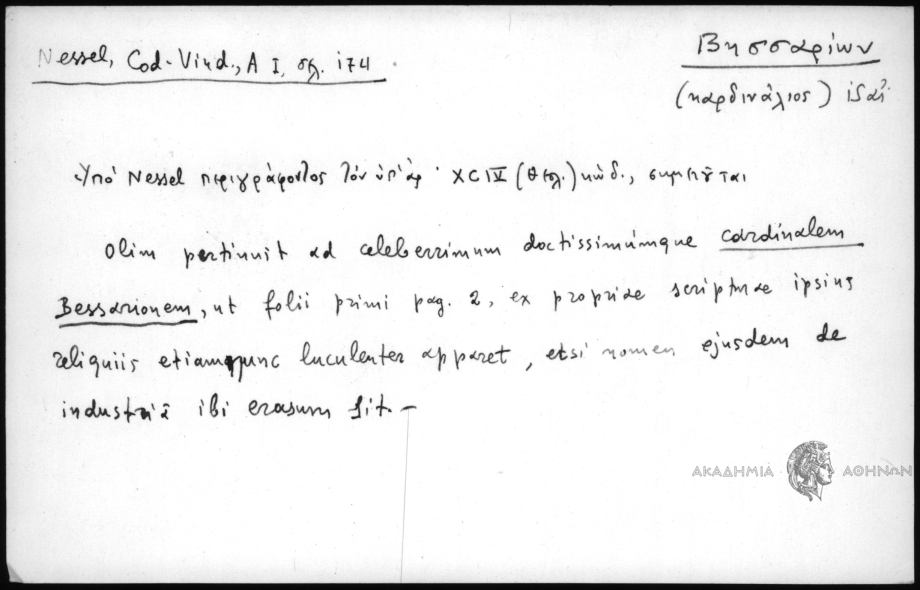 Nessel, Cod. Vind., A I, σελ. 174.
Βησσαρίων
(καρδινάλιος)
Ὑπὸ Nessel περιγράφοντος τὸν ὑπ' ἀρ. XCIV (θεολ.) κώδ., σημειοῦται
Olim pertinuit ad celeberrimum doctissimúmque cardinalem
Bessarionem, ut folii primi pag. 2, ex propriae scripturae ipsius
reliquiis etiamnunc luculenter apparet, etsi nomen ejusdem de
industriâ ibi erasum sit. –
ΑΚΑΔΗΜΙΑ ΑΘΗΝΩΝ